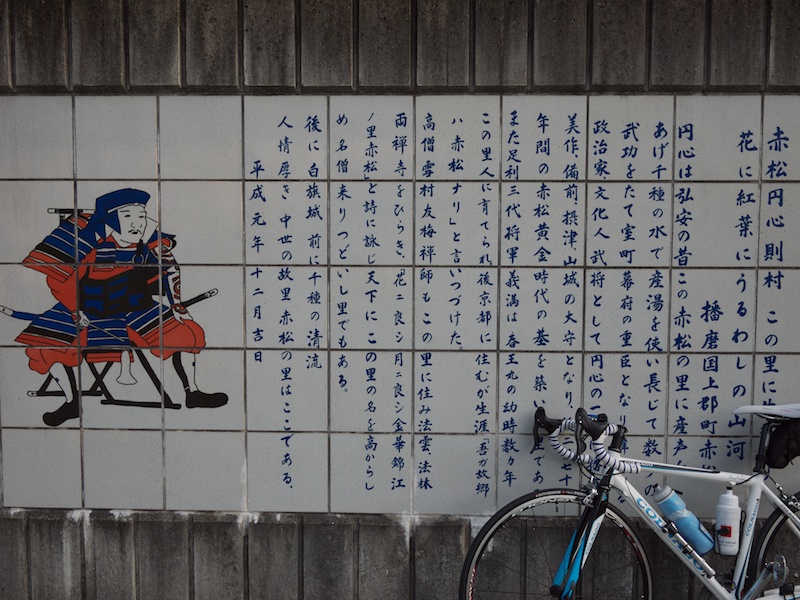 赤松円心則村 この里に
花に紅葉にうるわしの山河
播磨国上郡町赤松
円心は弘安の昔この赤松の里に産声
あげ千種の水で産湯を使い長じて数
武功をたて室町幕府の重臣となり
政治家 文化人 武将として円心の
美作 備前 摂津 山城の大守となり
年間の赤松黄金時代の基を築い
また足利三代将軍義満は春王丸の幼時数か年
この里人に育てられ後京都に住むが生涯「吾が故郷
ハ赤松ナリ」と言いつづけた。
高僧雪村友梅禅師もこの里に住み法雲、法林
両禅寺をひらき、「花ニ良シ月ニ良シ金華錦江
ノ里赤松」と詩に詠じ天下にこの里の名を高からし
め名僧来りつどいし里でもある。
後に白旗城 前に千種の清流
人情厚き 中世の故里赤松の里はここである。
平成元年 十二月吉日
COLNAGO